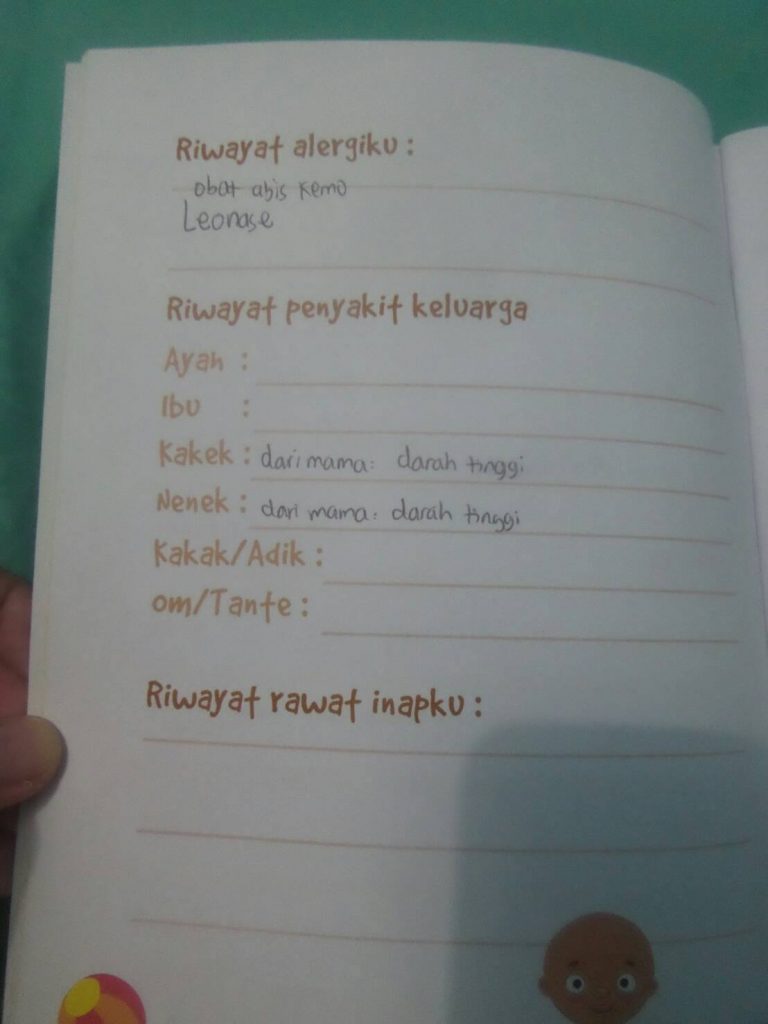 Riwayat alergiku :
obat abis kemo
Leonase
Riwayat penyakit keluarga
Ayah :
Ibu :
Kakek : dari mama: darah tinggi
Nenek : dari mama: darah tinggi
Kakak/Adik :
om/Tante :
Riwayat rawat inapku :